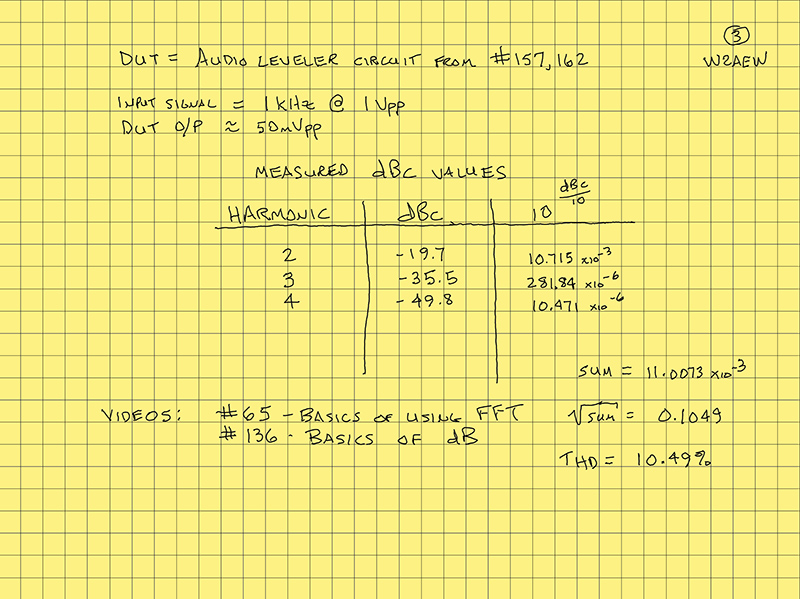 3
DUT = AUDIO LEVELER CIRCUIT FROM #157,162
W2AEW
INPUT SIGNAL = 1kHz @ 1Vpp
DUT O/P ≈ 50mVpp
MEASURED dBc VALUES
HARMONIC dBc 10^(dBc/10)
2 -19.7 10.715 x10^-3
3 -35.5 281.84 x10^-6
4 -49.8 10.471 x10^-6
SUM = 11.0073 x10^-3
VIDEOS: #65 - BASICS OF USING FFT
√SUM = 0.1049
#136 - BASICS OF dB
THD = 10.49%